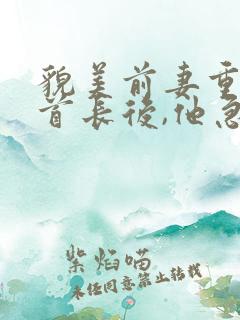 貌美前妻重
首长後,他急
紫焰喵
未经同意禁止转载